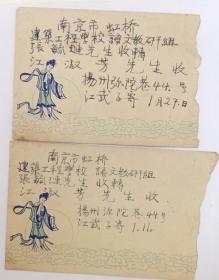 南京市虹桥
建築工程學校 語文教研組
張毓連先生收轉
江淑芳先生收
揚州弥陀巷44号
江武子寄 1月29日
南京市虹桥
建築工程學校 語文教研組
張毓連先生收轉
江淑芳先生收
揚州弥陀巷44号
江武子寄 1.11